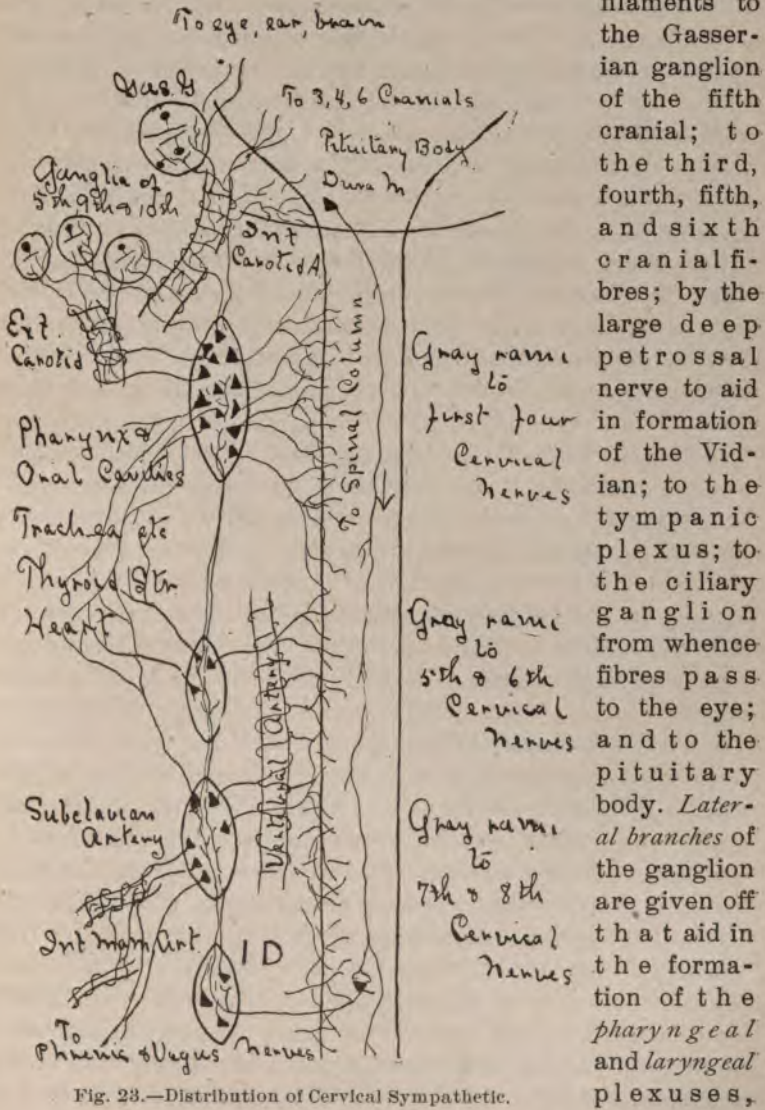 To eye, ear, brain
Gas. G
To 3, 4, 6 Cranials
Pituitary Body
Dura M
Ganglia of
5th 9th & 10th
Int
Carotid A
Ext.
Carotid
To Spinal Column
Gray rami
to
first four
Cervical
nerves
Pharynx &
Oral Cavities
Trachea etc
Thyroid Str
Heart
Vertebral Artery
Gray rami
to
5th & 6th
Cervical
nerves
Subclavian
Artery
Gray rami
to
7th & 8th
Cervical
nerves
Int Mam. Art.
1 D
To
Phrenic & Vagus nerves
Fig. 23.—Distribution of Cervical Sympathetic.
filaments to
the Gasser-
ian ganglion
of the fifth
cranial; to
the third,
fourth, fifth,
and sixth
cranial fi-
bres; by the
large deep
petrossal
nerve to aid
in formation
of the Vid-
ian; to the
tympanic
plexus; to
the ciliary
ganglion
from whence
fibres pass
to the eye;
and to the
pituitary
body. Later-
al branches of
the ganglion
are given off
that aid in
the forma-
tion of the
pharyngeal
and laryngeal
plexuses,